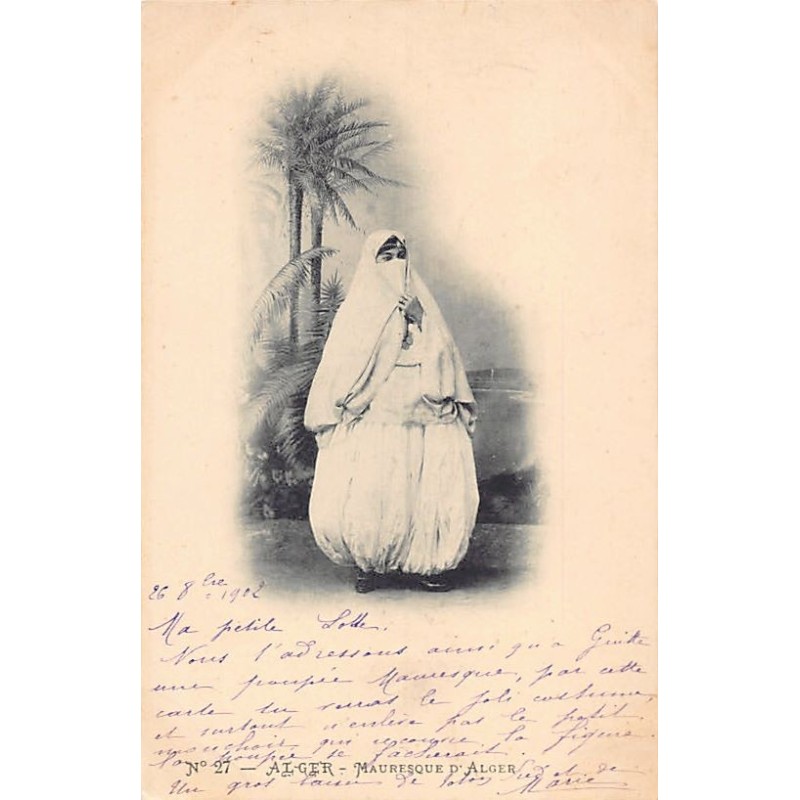 26 8bre 1902
Ma petite Lotte.
Nous t'adressons ainsi qu'a
une poupée Mauresque, par cette
carte tu verras le joli costume,
et surtout n'enlève pas le petit
mouchoir qui recouvre la figure
la poupée se facherait.
N° 27 — ALGER - MAURESQUE D'ALGER
Un gros baiser de et de
Marie